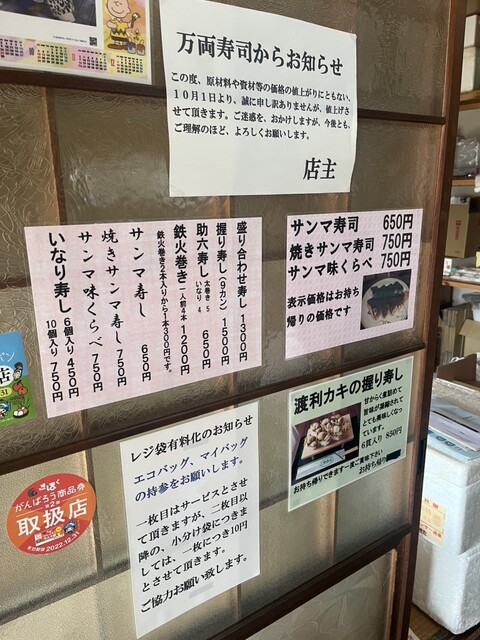 万両寿司からお知らせ
この度、原材料や資材等の価格の値上がりにともない、
10月1日より、誠に申し訳ありませんが、値上げさ
せて頂きます。ご迷惑を、おかけしますが、今後とも、
ご理解のほど、よろしくお願いします。
店主
盛り合わせ寿し 1300円
握り寿し(9カン) 1500円
助六寿し 太巻き 5 いなり 4 650円
鉄火巻き 一人前4本 1200円
鉄火巻き2本入りから1本300円です。
サンマ寿し 650円
焼きサンマ寿し 750円
サンマ味くらべ 750円
いなり寿し 6個入り 450円
10個入り 750円
サンマ寿司 650円
焼きサンマ寿司 750円
サンマ味くらべ 750円
表示価格はお持ち
帰りの価格です
渡利カキの握り寿し
甘からく煮詰めて
旨味が凝縮されて
とても美味しくなっ
ています。
6貫入り 850円
お持ち帰りできます一度ご賞味下さい
お持ち帰り
レジ袋有料化のお知らせ
エコバッグ、マイバッグ
の持参をお願いします。
一枚目はサービスとさせ
て頂きますが、二枚目以
降の、小分け袋につきま
しては、一枚につき10円
とさせて頂きます。
ご協力お願い致します。
きほく
がんばろう商品券
第2弾
取扱店
有効期限 2022.12.31
パン
店
31